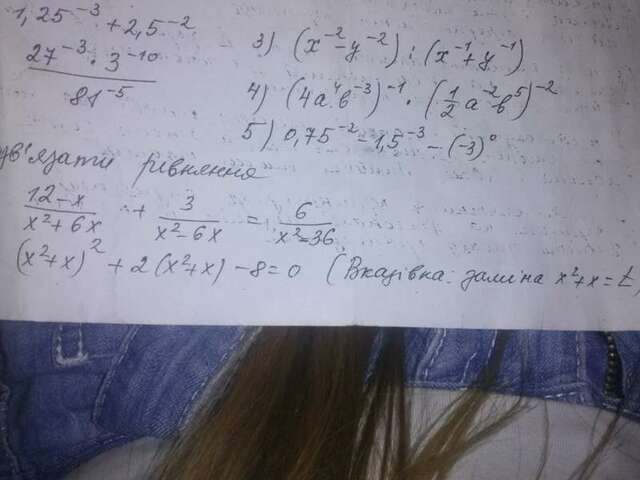 1,25⁻³ + 2,5⁻²
27⁻³ · 3⁻¹⁰ / 81⁻⁵
3) (x⁻² - y⁻²) : (x⁻¹ + y⁻¹)
4) (4a⁴b⁻³)⁻¹ · (1/2 a⁻²b⁵)⁻²
5) 0,75⁻² - 1,5⁻³ - (-3)⁰
зв'язати рівняння
12-x / x²+6x + 3 / x²-6x = 6 / x²-36
(x²+x)² + 2(x²+x) - 8 = 0 (Вказівка: заміна x²+x=t,